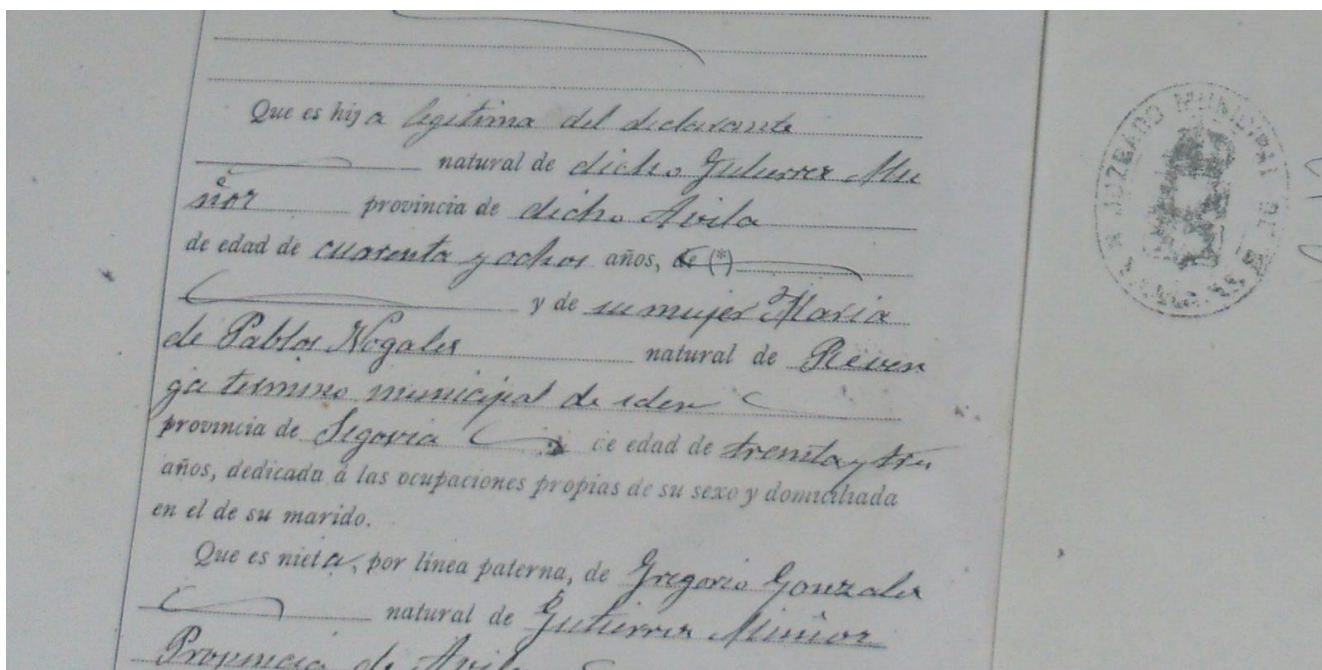 Que es hija legitima del declarante
natural de dicho Gutierrez Mu
ñoz provincia de dicho Avila
de edad de cuarenta y ochos años, de (*)
y de su mujer Maria
de Pablos Nogales natural de Reven
ga termino municipal de iden
provincia de Segovia de edad de treinta y tres
años, dedicada á las ocupaciones propias de su sexo y domiciliada
en el de su marido.
Que es nieta, por línea paterna, de Gregorio Gonzales
natural de Gutierrez Muñoz
Provincia de Avila
JUZGADO MUNICIPAL DE